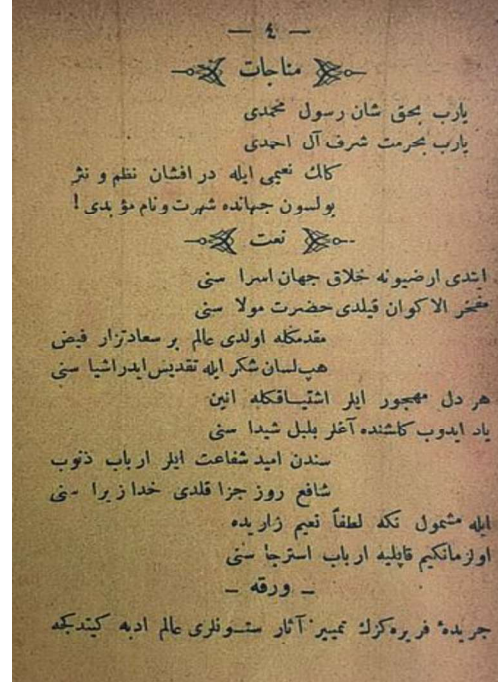 — ٤ —
مناجات
يارب بحق شان رسول محمدی
يارب بحرمت شرف آل احمدی
كلك نعیمی ایله در افشان نظم و نثر
بولسون جهانده شهرت و نام مؤبدی !
نعت
ایتدی ارضیونه خلاق جهان اسرا سنی
مفخر الاكوان قیلدی حضرت مولا سنی
مقدمكله اولدی عالم بر سعادتزار فیض
هپ لسان شكر ایله تقدیس ایدر اشیا سنی
هر دل مهجور ایلر اشتیاقكله انین
یاد ایدوب كاشنده آغلر بلبل شیدا سنی
سندن امید شفاعت ایلر ارباب ذنوب
شافع روز جزا قلدی خدا زیرا سنی
ایله مشمول نكه لطفاً نعیم زاریده
اولزمانكیم قاپلیه ارباب استرجا سنی
ــ ورقه ــ
جریدهٔ فریده‌كزك تمییز آثار ستونلری عالم ادبه كیتدكجه